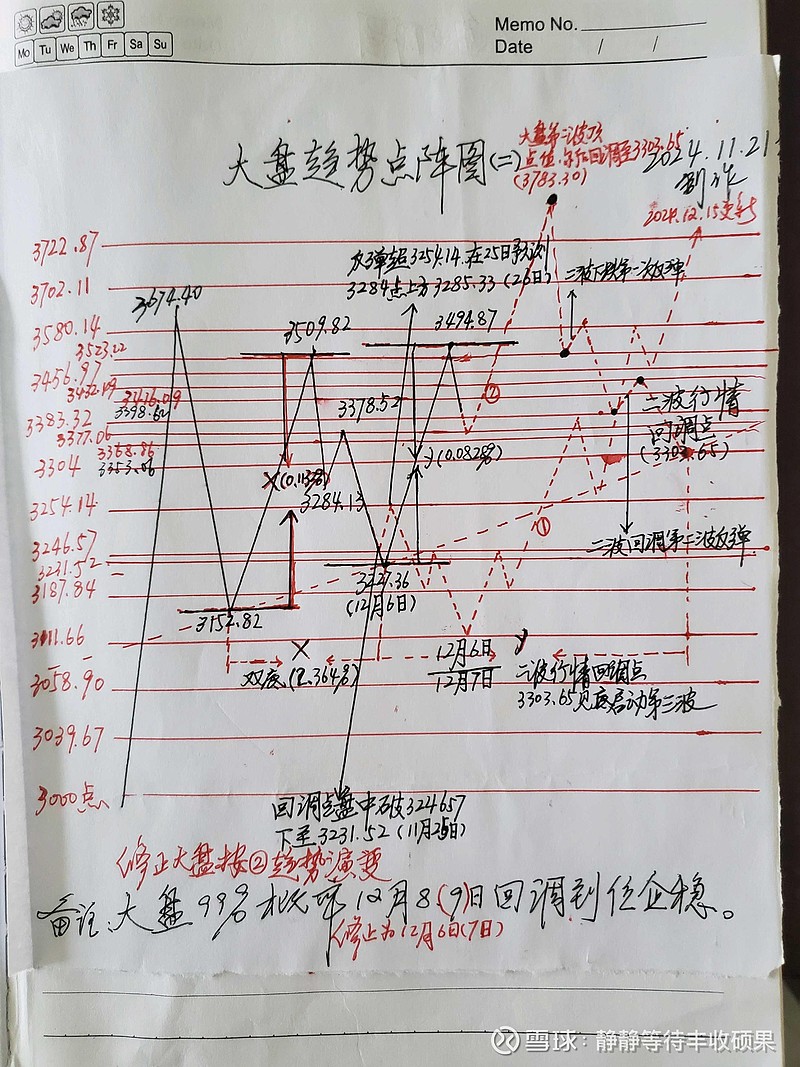 Memo No.
Mo Tu We Th Fr Sa Su
Date / /
大盘趋势点阵图(二)
大盘第二波顶
点位,尔后回调至3303.65
(3783.30)
2024.11.21
制作
2024.12.15更新
3722.87
3702.11
3580.14
3523.22
3456.97
3432.09
3416.09
3398.62
3383.32
3377.06
3368.86
3304
3353.06
3254.14
3246.57
3231.52
3187.84
3111.66
3058.90
3039.67
3000点
3674.40
3509.82
反弹超3254.14.在25日预测
3284点上方3285.33(26日)
3494.87
二波下跌第一次反弹
3378.52
②
二波行情
回调点
(3303.65)
X(0.113%)
(0.0828%)
3284.13
①
二波回调第二波反弹
3227.36
(12月6日)
3152.82
X
Y
双底(2.364%)
12月6日
12月7日
二波行情回调点
3303.65见底启动第三波
回调点盘中破324657
下至3231.52(11月26日)
修正大盘按②趋势演变
备注:大盘99%概率12月8(9)日回调到位企稳。
修正为12月6日(7日)
雪球:静静等待丰收硕果